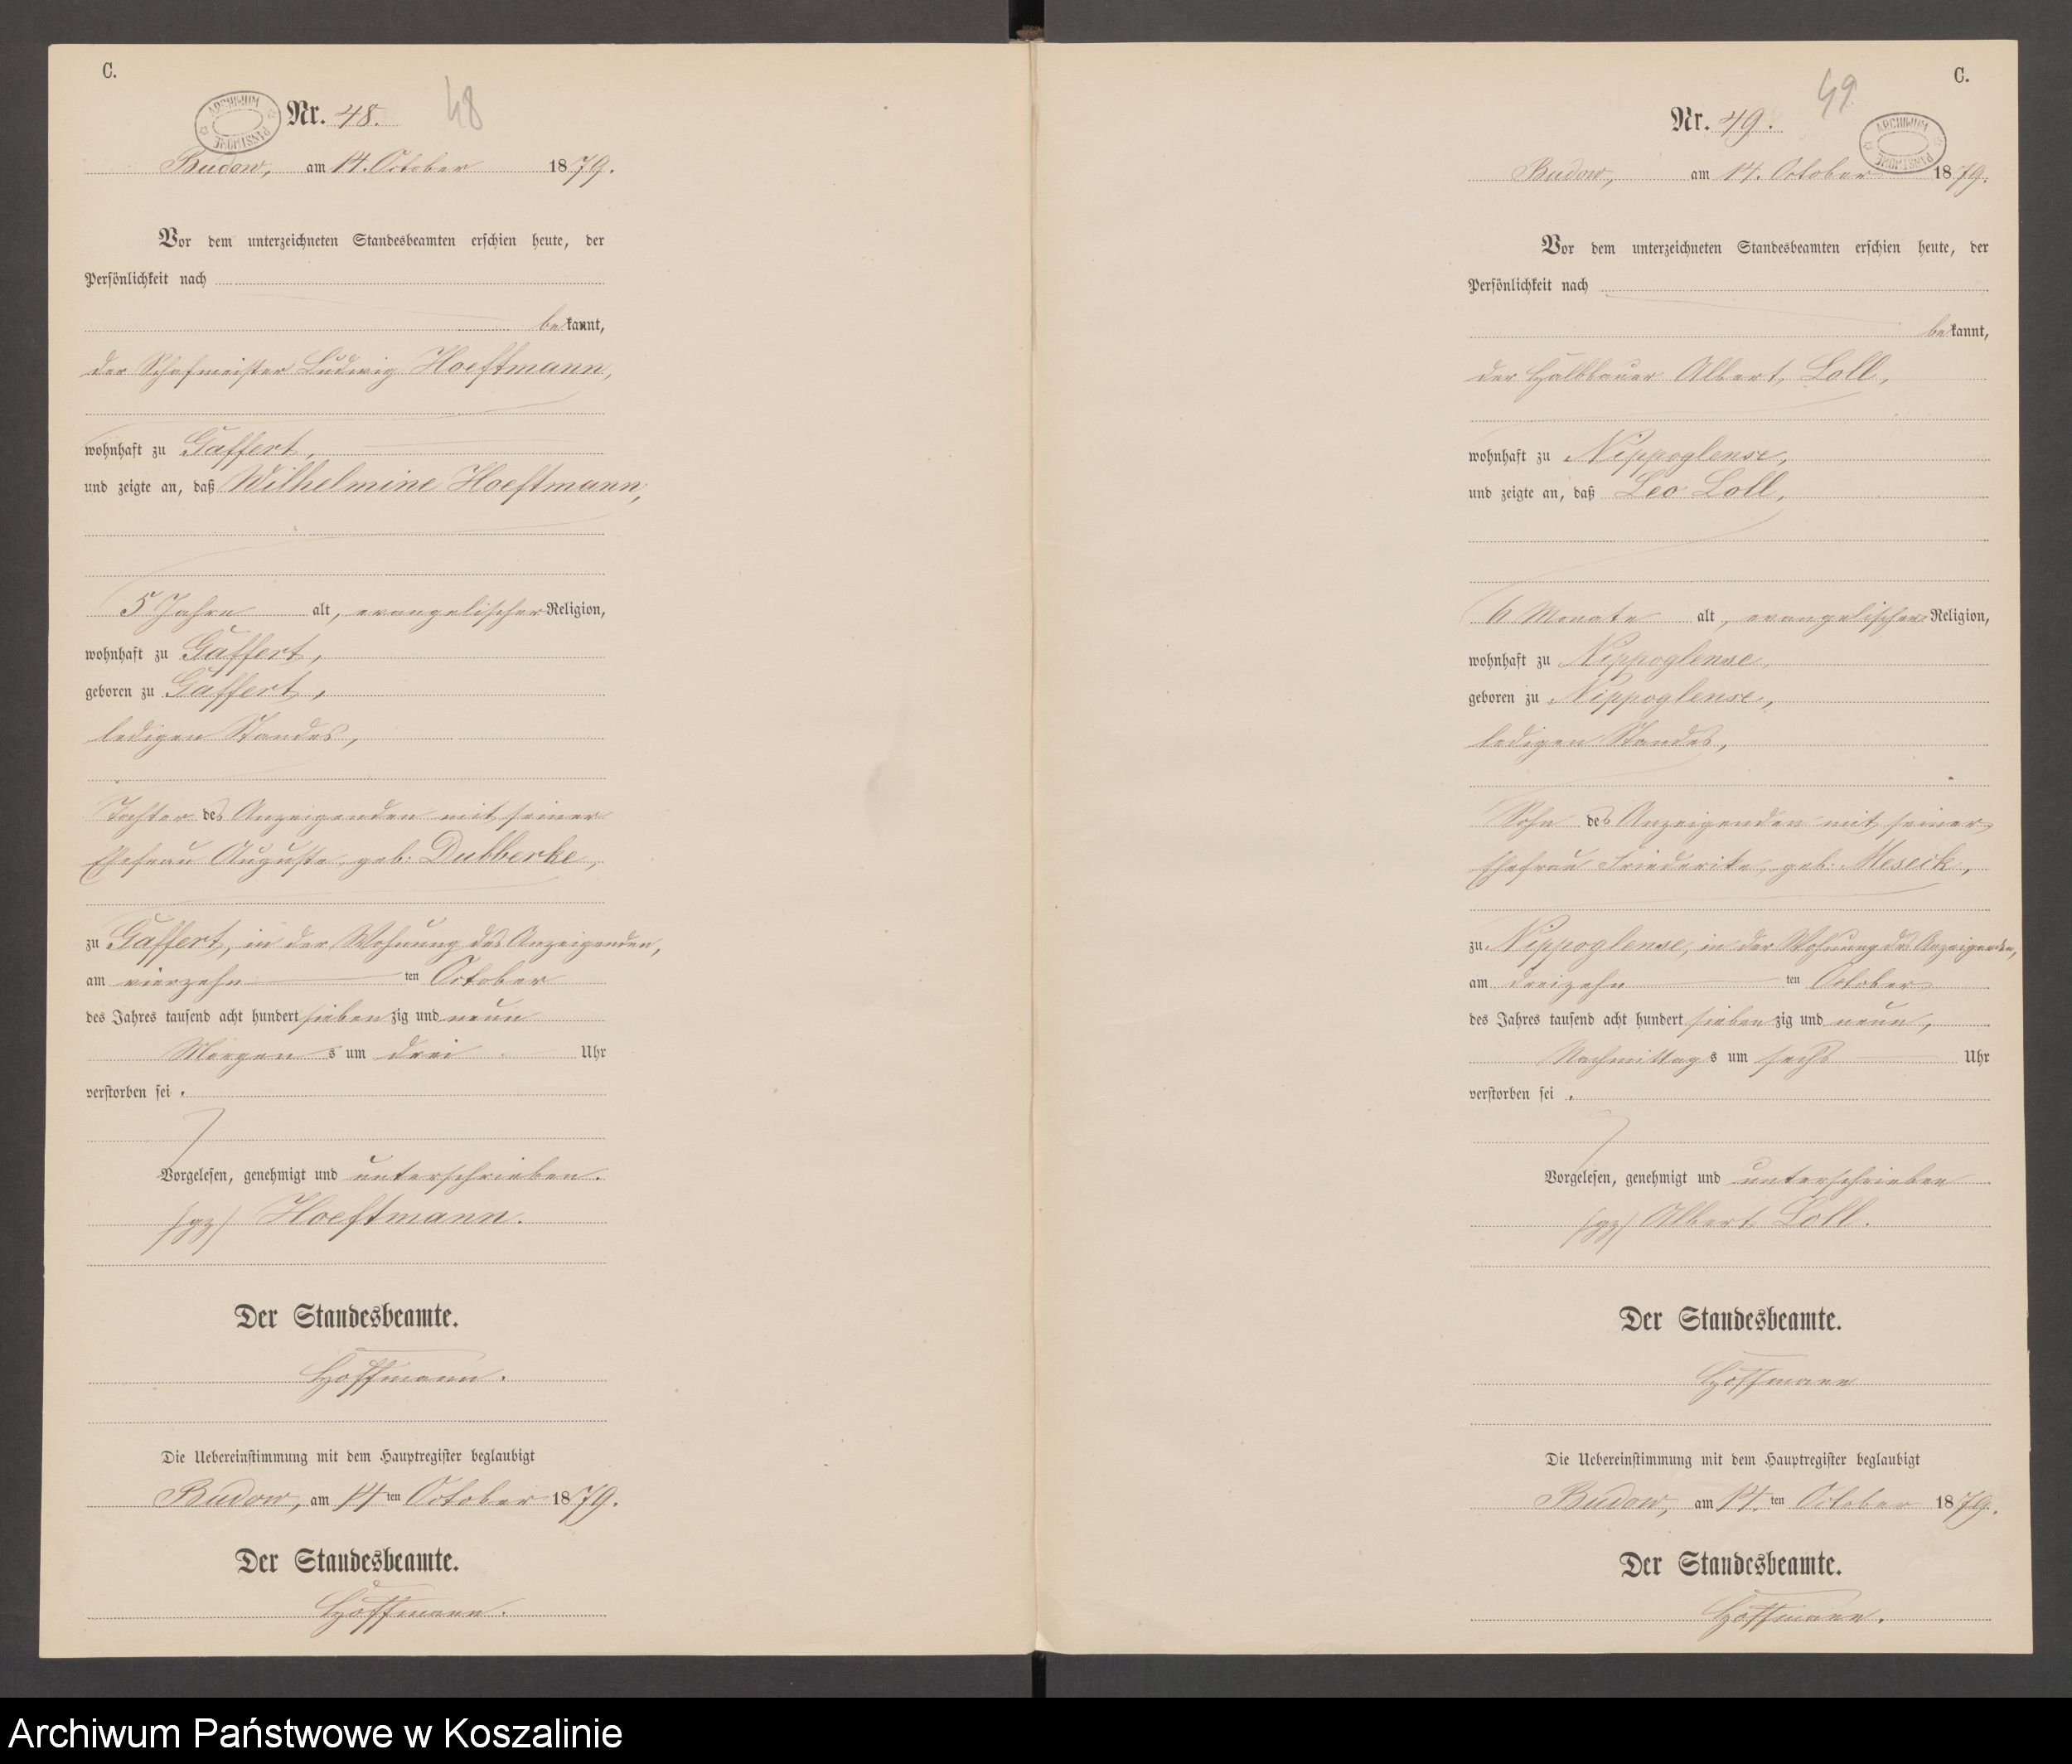 C.
ARCHIWUM PAŃSTWOWE
Nr. 48.
48
Budow, am 14. October 1879.
Vor dem unterzeichneten Standesbeamten erschien heute, der
Persönlichkeit nach
bekannt,
der Schafmeister Ludwig Hoeftmann,
wohnhaft zu Gaffert,
und zeigte an, daß Wilhelmine Hoeftmann,
5 Jahre alt, evangelischer Religion,
wohnhaft zu Gaffert,
geboren zu Gaffert,
ledigen Standes,
Tochter des Anzeigenden mit seiner
Ehefrau Auguste, geb: Dubberke,
zu Gaffert, in der Wohnung des Anzeigenden,
am vierzehn ten October
des Jahres tausend acht hundert siebenzig und neun
Morgens um drei Uhr
verstorben sei.
Vorgelesen, genehmigt und unterschrieben.
/gz/ Hoeftmann.
Der Standesbeamte.
Hoffmann.
Die Uebereinstimmung mit dem Hauptregister beglaubigt
Budow, am 14ten October 1879.
Der Standesbeamte.
Hoffmann.
C.
49
Nr. 49.
ARCHIWUM PAŃSTWOWE
Budow, am 14. October 1879.
Vor dem unterzeichneten Standesbeamten erschien heute, der
Persönlichkeit nach
bekannt,
der Halbbauer Albert Loll,
wohnhaft zu Nippoglense,
und zeigte an, daß Leo Loll,
6 Monate alt, evangelischer Religion,
wohnhaft zu Nippoglense,
geboren zu Nippoglense,
ledigen Standes,
Sohn des Anzeigenden mit seiner
Ehefrau Friederike, geb: Meseck,
zu Nippoglense, in der Wohnung des Anzeigenden,
am dreizehn ten October
des Jahres tausend acht hundert siebenzig und neun,
Nachmittags um sechs Uhr
verstorben sei.
Vorgelesen, genehmigt und unterschrieben
/gz/ Albert Loll.
Der Standesbeamte.
Hoffmann
Die Uebereinstimmung mit dem Hauptregister beglaubigt
Budow, am 14. ten October 1879.
Der Standesbeamte.
Hoffmann.
Archiwum Państwowe w Koszalinie